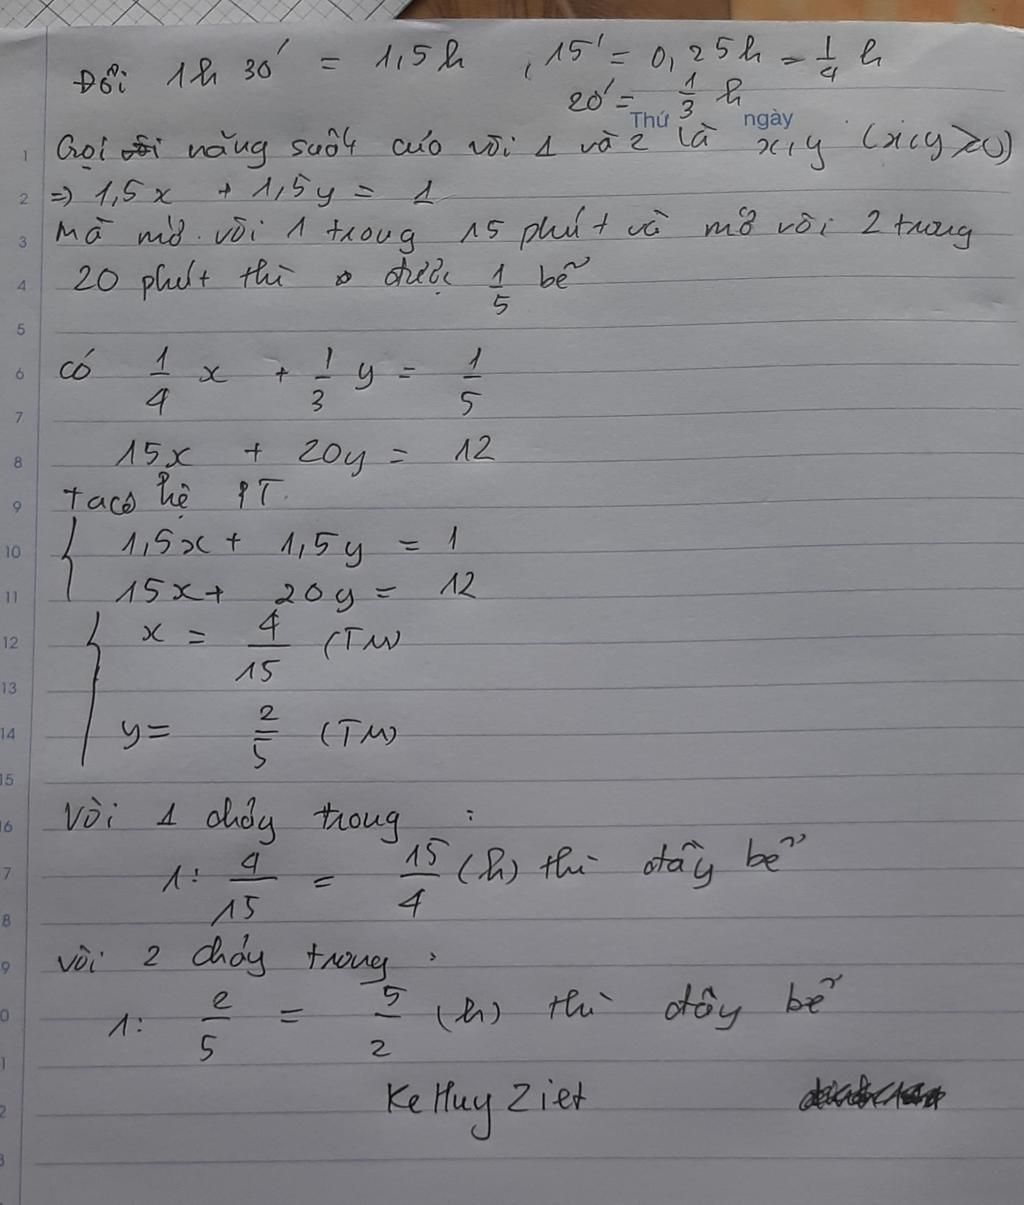 Đổi 1h 30' = 1,5h , 15' = 0,25h = 1/4 h
20' = 1/3 h
Thứ ngày
1 Gọi năng suất của vòi 1 và 2 là x,y (x,y > 0)
2 => 1,5x + 1,5y = 1
3 Mà mở vòi 1 trong 15 phút và mở vòi 2 trong
4 20 phút thì được 1/5 bể
5
6 có 1/4 x + 1/3 y = 1/5
7
8 15x + 20y = 12
9 ta có hệ PT
10 { 1,5x + 1,5y = 1
11 15x + 20y = 12
12 { x = 4/15 (TM)
13
14 y = 2/5 (TM)
15
6 Vòi 1 chảy trong :
7 1: 4/15 = 15/4 (h) thì đầy bể
8
9 vòi 2 chảy trong :
0 1: 2/5 = 5/2 (h) thì đầy bể
1
2 Ke Huy Ziet
3